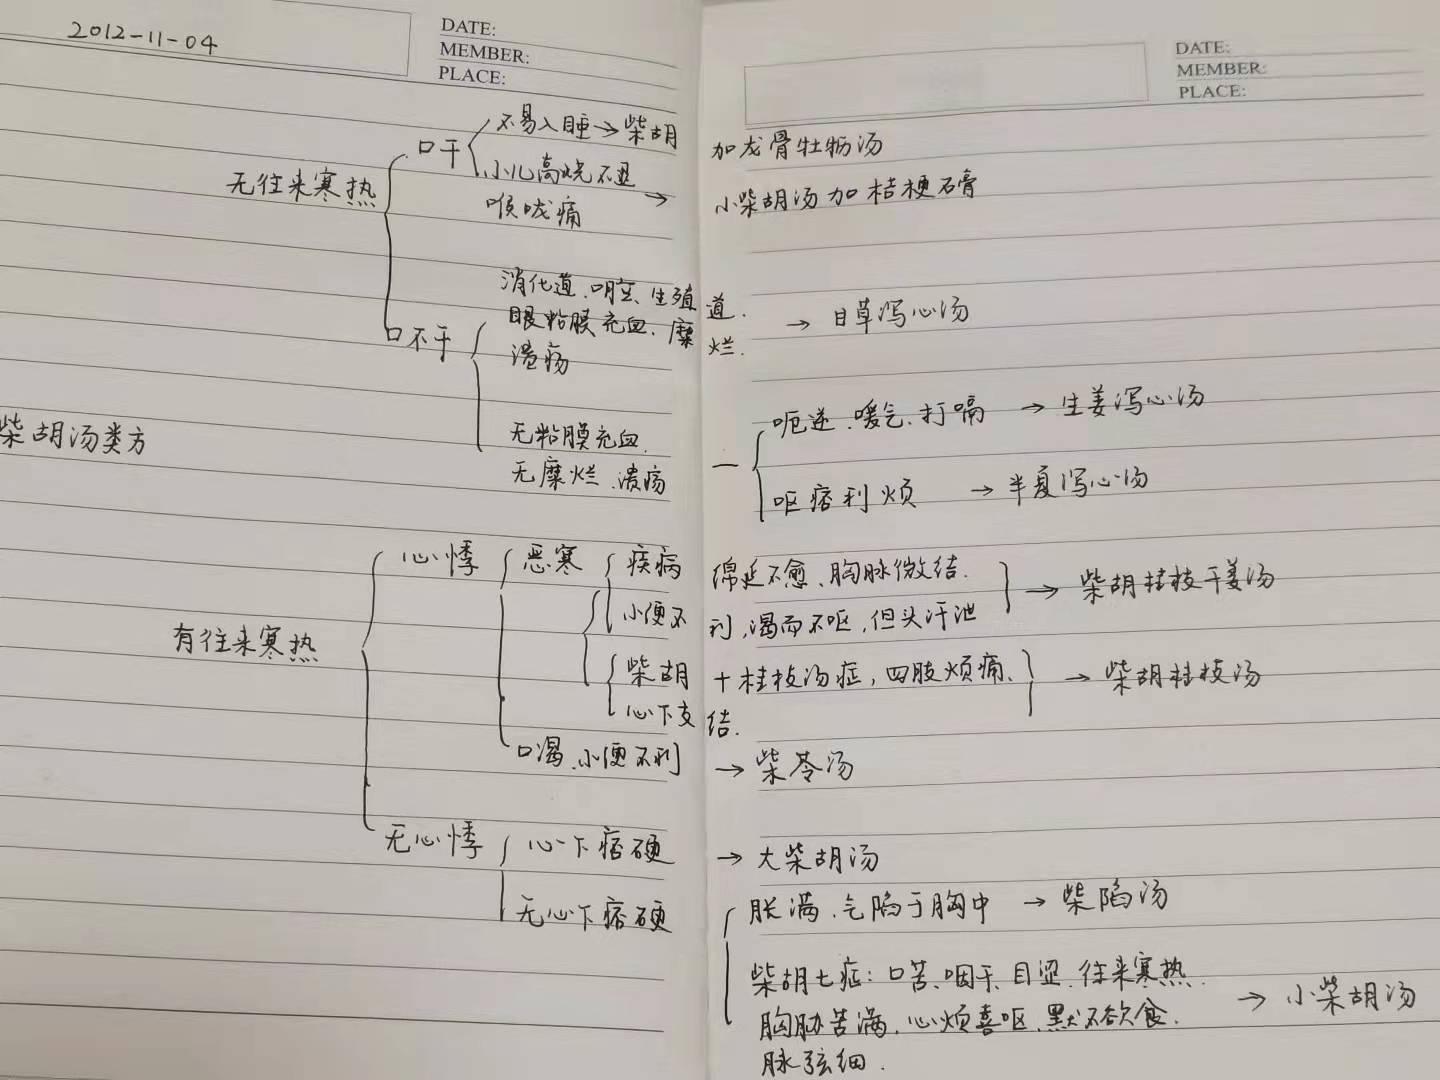 2012-11-04
DATE:
MEMBER:
PLACE:
DATE:
MEMBER:
PLACE:
柴胡汤类方
无往来寒热
口干
不易入睡→柴胡加龙骨牡蛎汤
小儿高烧不退
喉咙痛
→小柴胡汤加桔梗石膏
口不干
消化道、咽、生殖道、
眼粘膜充血、糜烂、
溃疡
→甘草泻心汤
无粘膜充血、
无糜烂、溃疡
呃逆、嗳气、打嗝→生姜泻心汤
呕痞利烦→半夏泻心汤
有往来寒热
心悸
恶寒
疾病绵延不愈、胸脉微结、
小便不利,渴而不呕,但头汗泄
→柴胡桂枝干姜汤
柴胡+桂枝汤症,四肢烦痛、
心下支结、
→柴胡桂枝汤
口渴、小便不利→柴苓汤
无心悸
心下痞硬→大柴胡汤
无心下痞硬
胀满、气陷于胸中→柴陷汤
柴胡七症:口苦、咽干、目涩、往来寒热、
胸胁苦满、心烦喜呕、默不欲食、
脉弦细.
→小柴胡汤